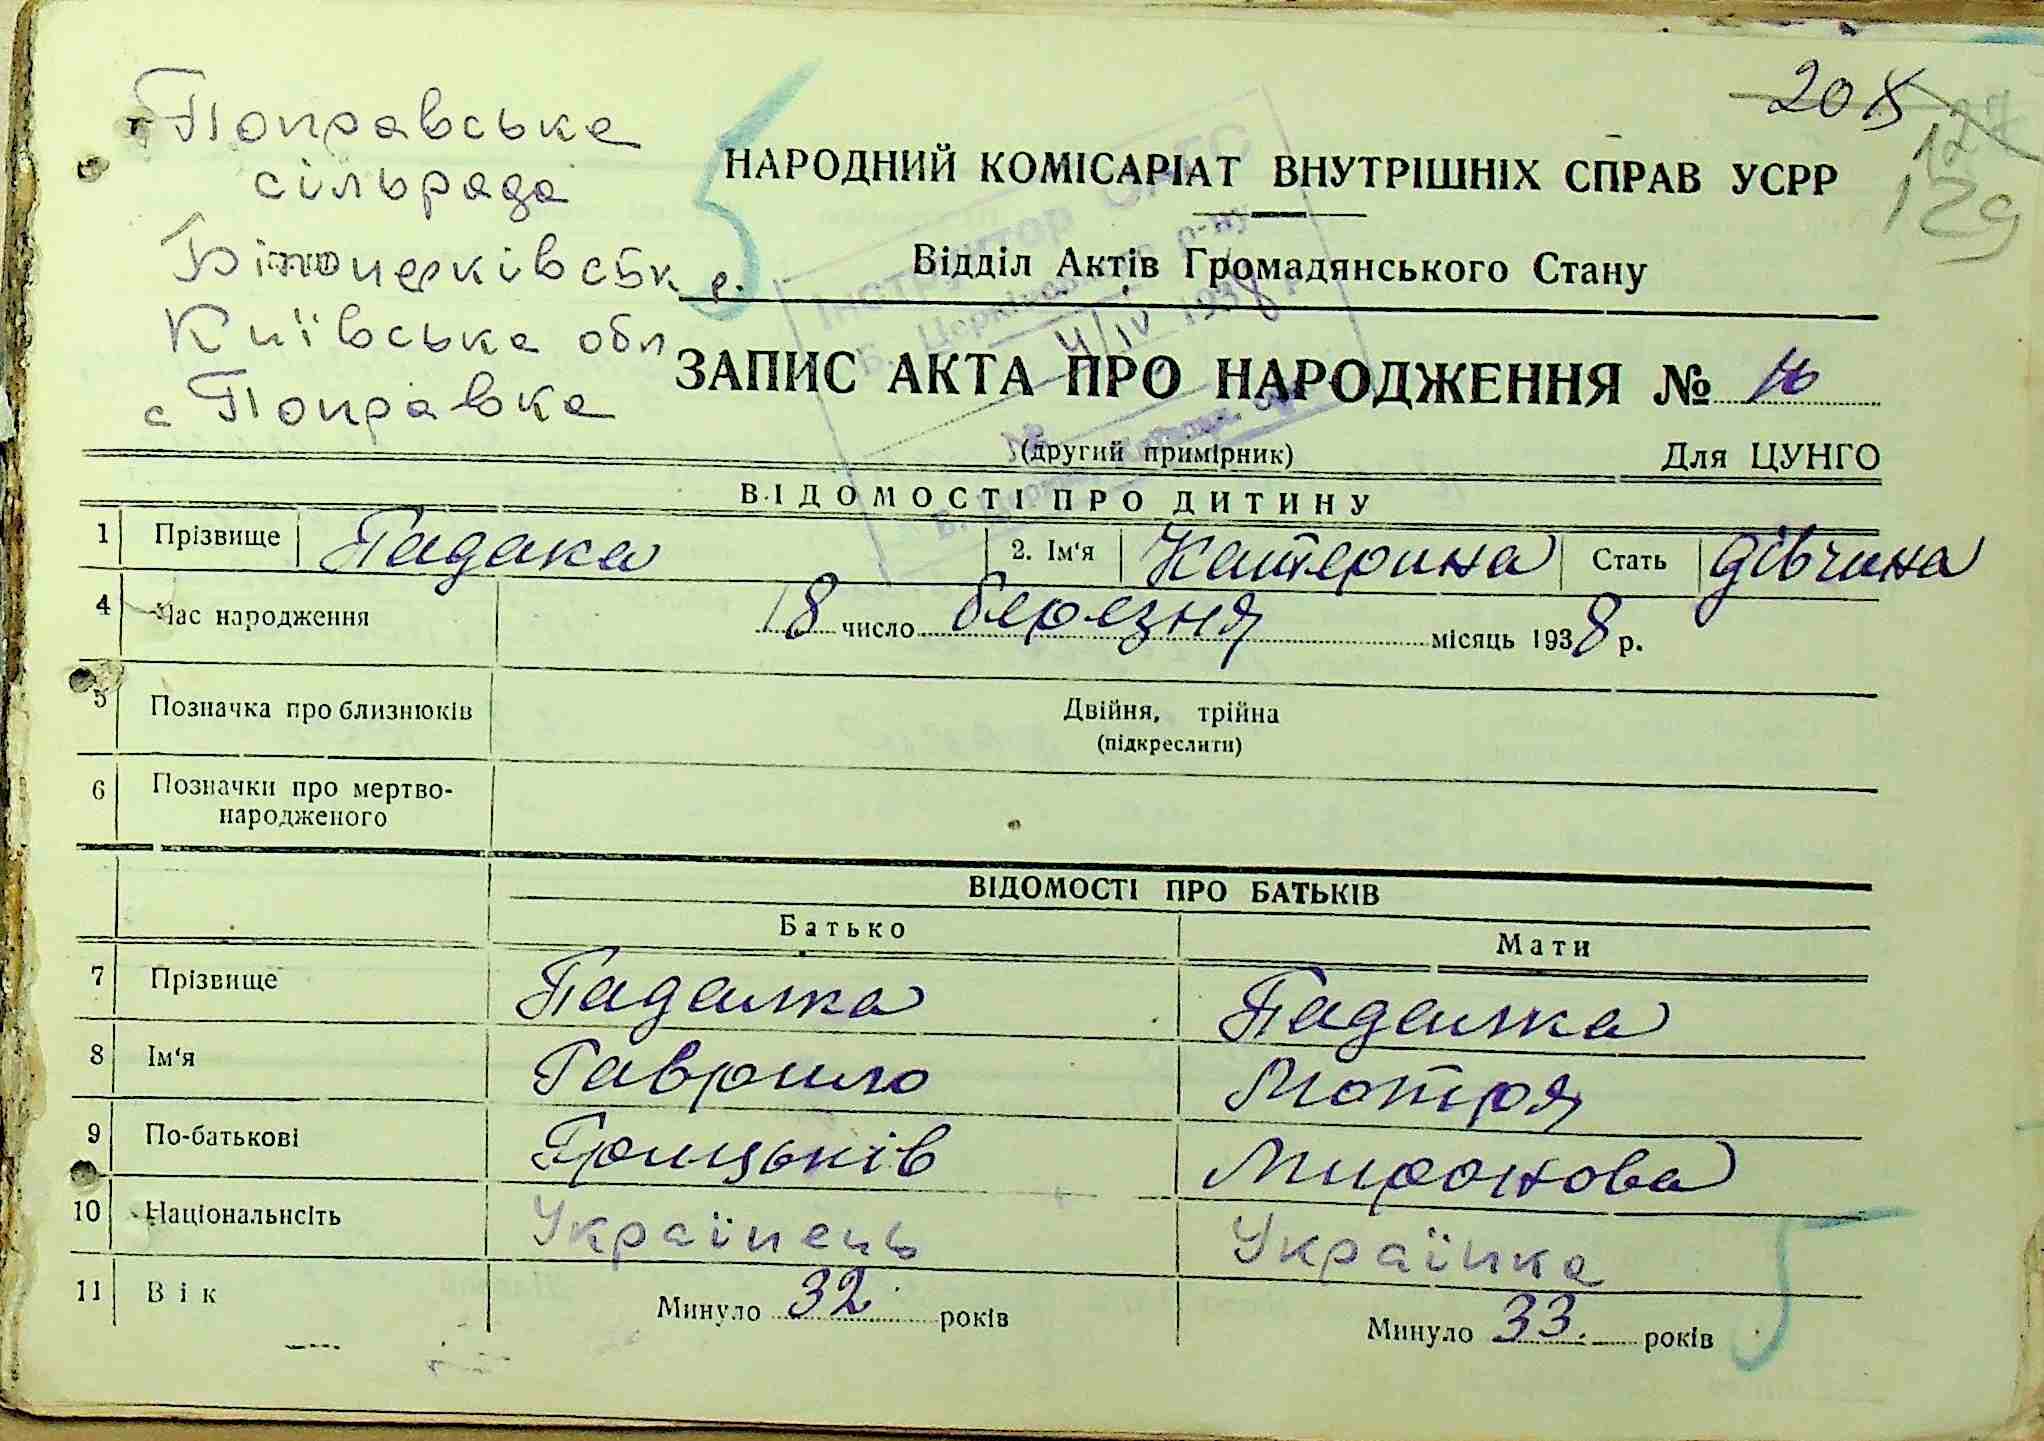 Поправська
сільрада
Білоцерківськ р.
Київська обл
с Поправка
208
127
129
НАРОДНИЙ КОМІСАРІАТ ВНУТРІШНІХ СПРАВ УСРР
Відділ Актів Громадянського Стану
Інструктор ЗАГС
Б. Церківського р-ну
4/IV 1938 р
ЗАПИС АКТА ПРО НАРОДЖЕННЯ № 16
(другий примірник) Для ЦУНГО
ВІДОМОСТІ ПРО ДИТИНУ
1 Прізвище Падака 2. Ім'я Катерина Стать дівчина
4 Час народження 18 число березня місяць 1938 р.
5 Позначка про близнюків Двійня, трійна
(підкреслити)
6 Позначки про мертво-
народженого
ВІДОМОСТІ ПРО БАТЬКІВ
Батько Мати
7 Прізвище Падалка Падалка
8 Ім'я Гаврило Мотря
9 По-батькові Грицьків Миронова
10 Національнсіть Українець Українка
11 Вік Минуло 32 років Минуло 33. років